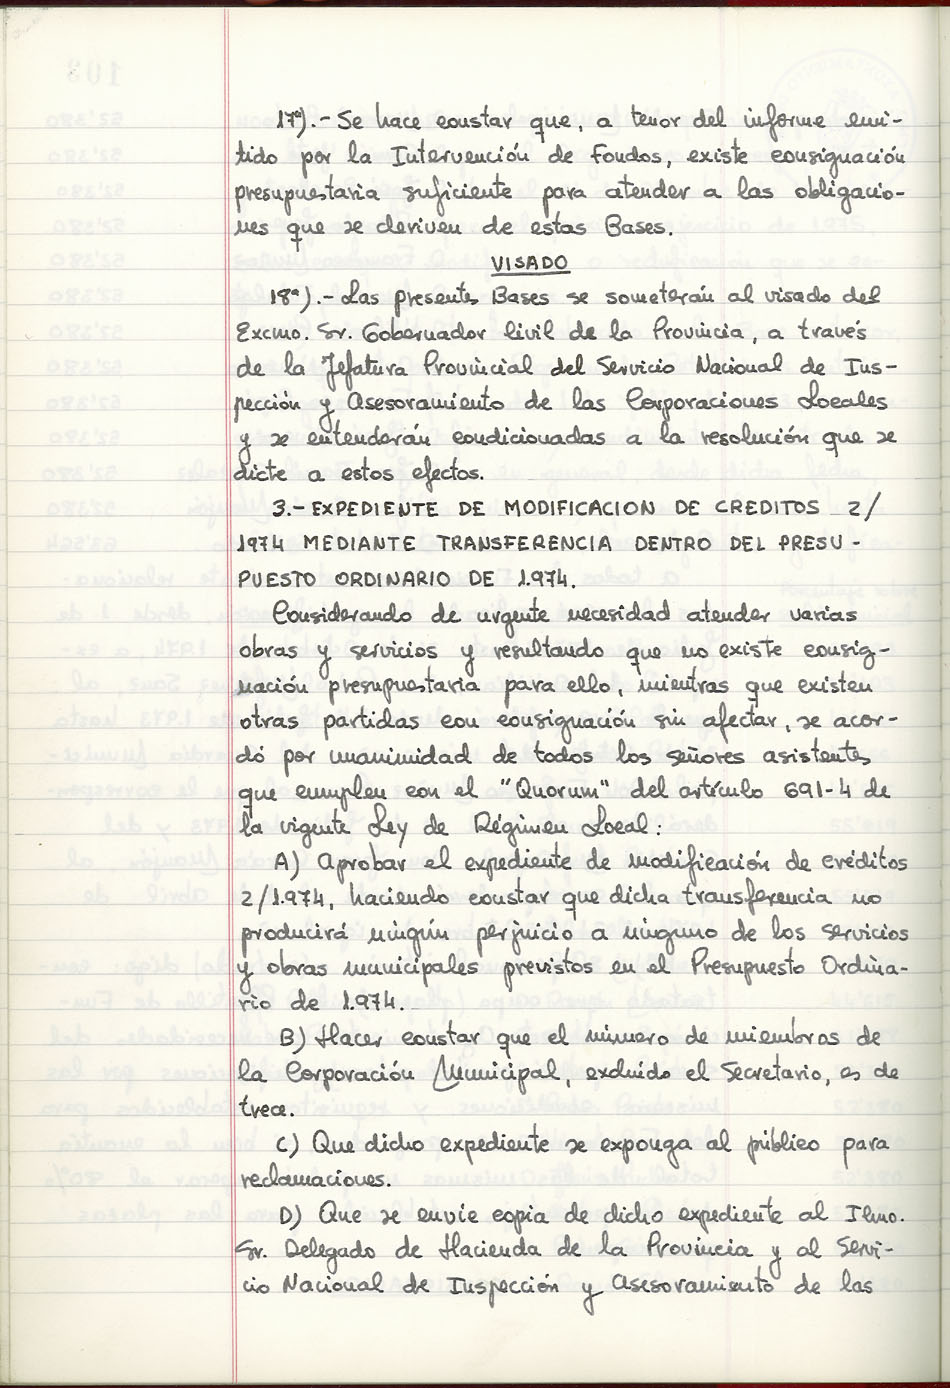 17ª).- Se hace constar que, a tenor del informe emi-
tido por la Intervención de Fondos, existe consignación
presupuestaria suficiente para atender a las obligacio-
nes que se deriven de estas Bases.
VISADO
18ª).- Las presentes Bases se someterán al visado del
Excmo. Sr. Gobernador Civil de la Provincia, a través
de la Jefatura Provincial del Servicio Nacional de Ins-
pección y Asesoramiento de las Corporaciones Locales
y se entenderán condicionadas a la resolución que se
dicte a estos efectos.
3.- EXPEDIENTE DE MODIFICACION DE CREDITOS 2/
1974 MEDIANTE TRANSFERENCIA DENTRO DEL PRESU-
PUESTO ORDINARIO DE 1.974.
Considerando de urgente necesidad atender varias
obras y servicios y resultando que no existe consig-
nación presupuestaria para ello, mientras que existen
otras partidas con consignación sin afectar, se acor-
dó por unanimidad de todos los señores asistentes
que cumplen con el "Quorum" del artículo 691-4 de
la vigente Ley de Régimen Local:
A) Aprobar el expediente de modificación de créditos
2/1.974, haciendo constar que dicha transferencia no
producirá ningún perjuicio a ninguno de los servicios
y obras municipales previstos en el Presupuesto Ordina-
rio de 1.974.
B) Hacer constar que el número de miembros de
la Corporación Municipal, excluído el Secretario, es de
trece.
C) Que dicho expediente se exponga al público para
reclamaciones.
D) Que se envíe copia de dicho expediente al Ilmo.
Sr. Delegado de Hacienda de la Provincia y al Servi-
cio Nacional de Inspección y Asesoramiento de las